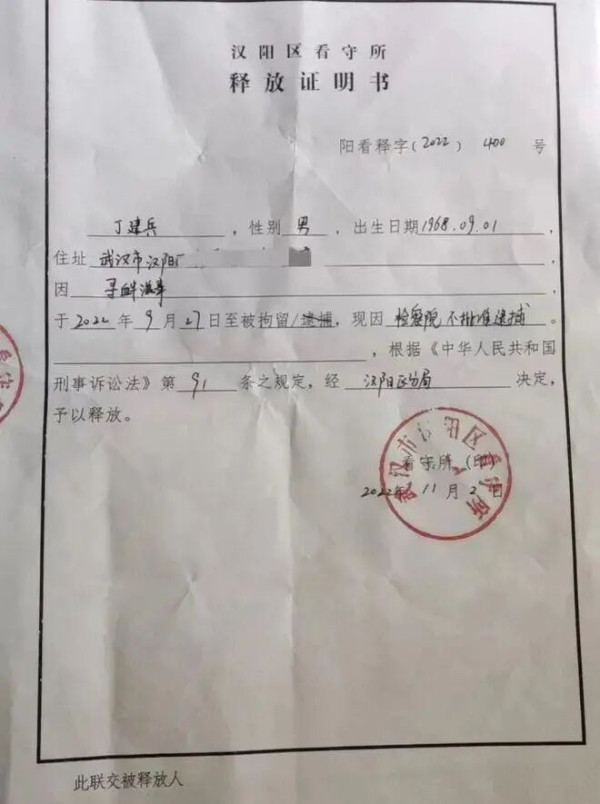 汉阳区看守所
释放证明书
阳看释字(2022)400号
丁建兵,性别男,出生日期1968.09.01
住址武汉市汉阳
因寻衅滋事,
于2022年9月27日至被拘留/逮捕,现因检察院不批准逮捕。
,根据《中华人民共和国
刑事诉讼法》第91条之规定,经汉阳区分局决定,
予以释放。
看守所(印)
2022年11月2日
武汉市汉阳区看守所
此联交被释放人